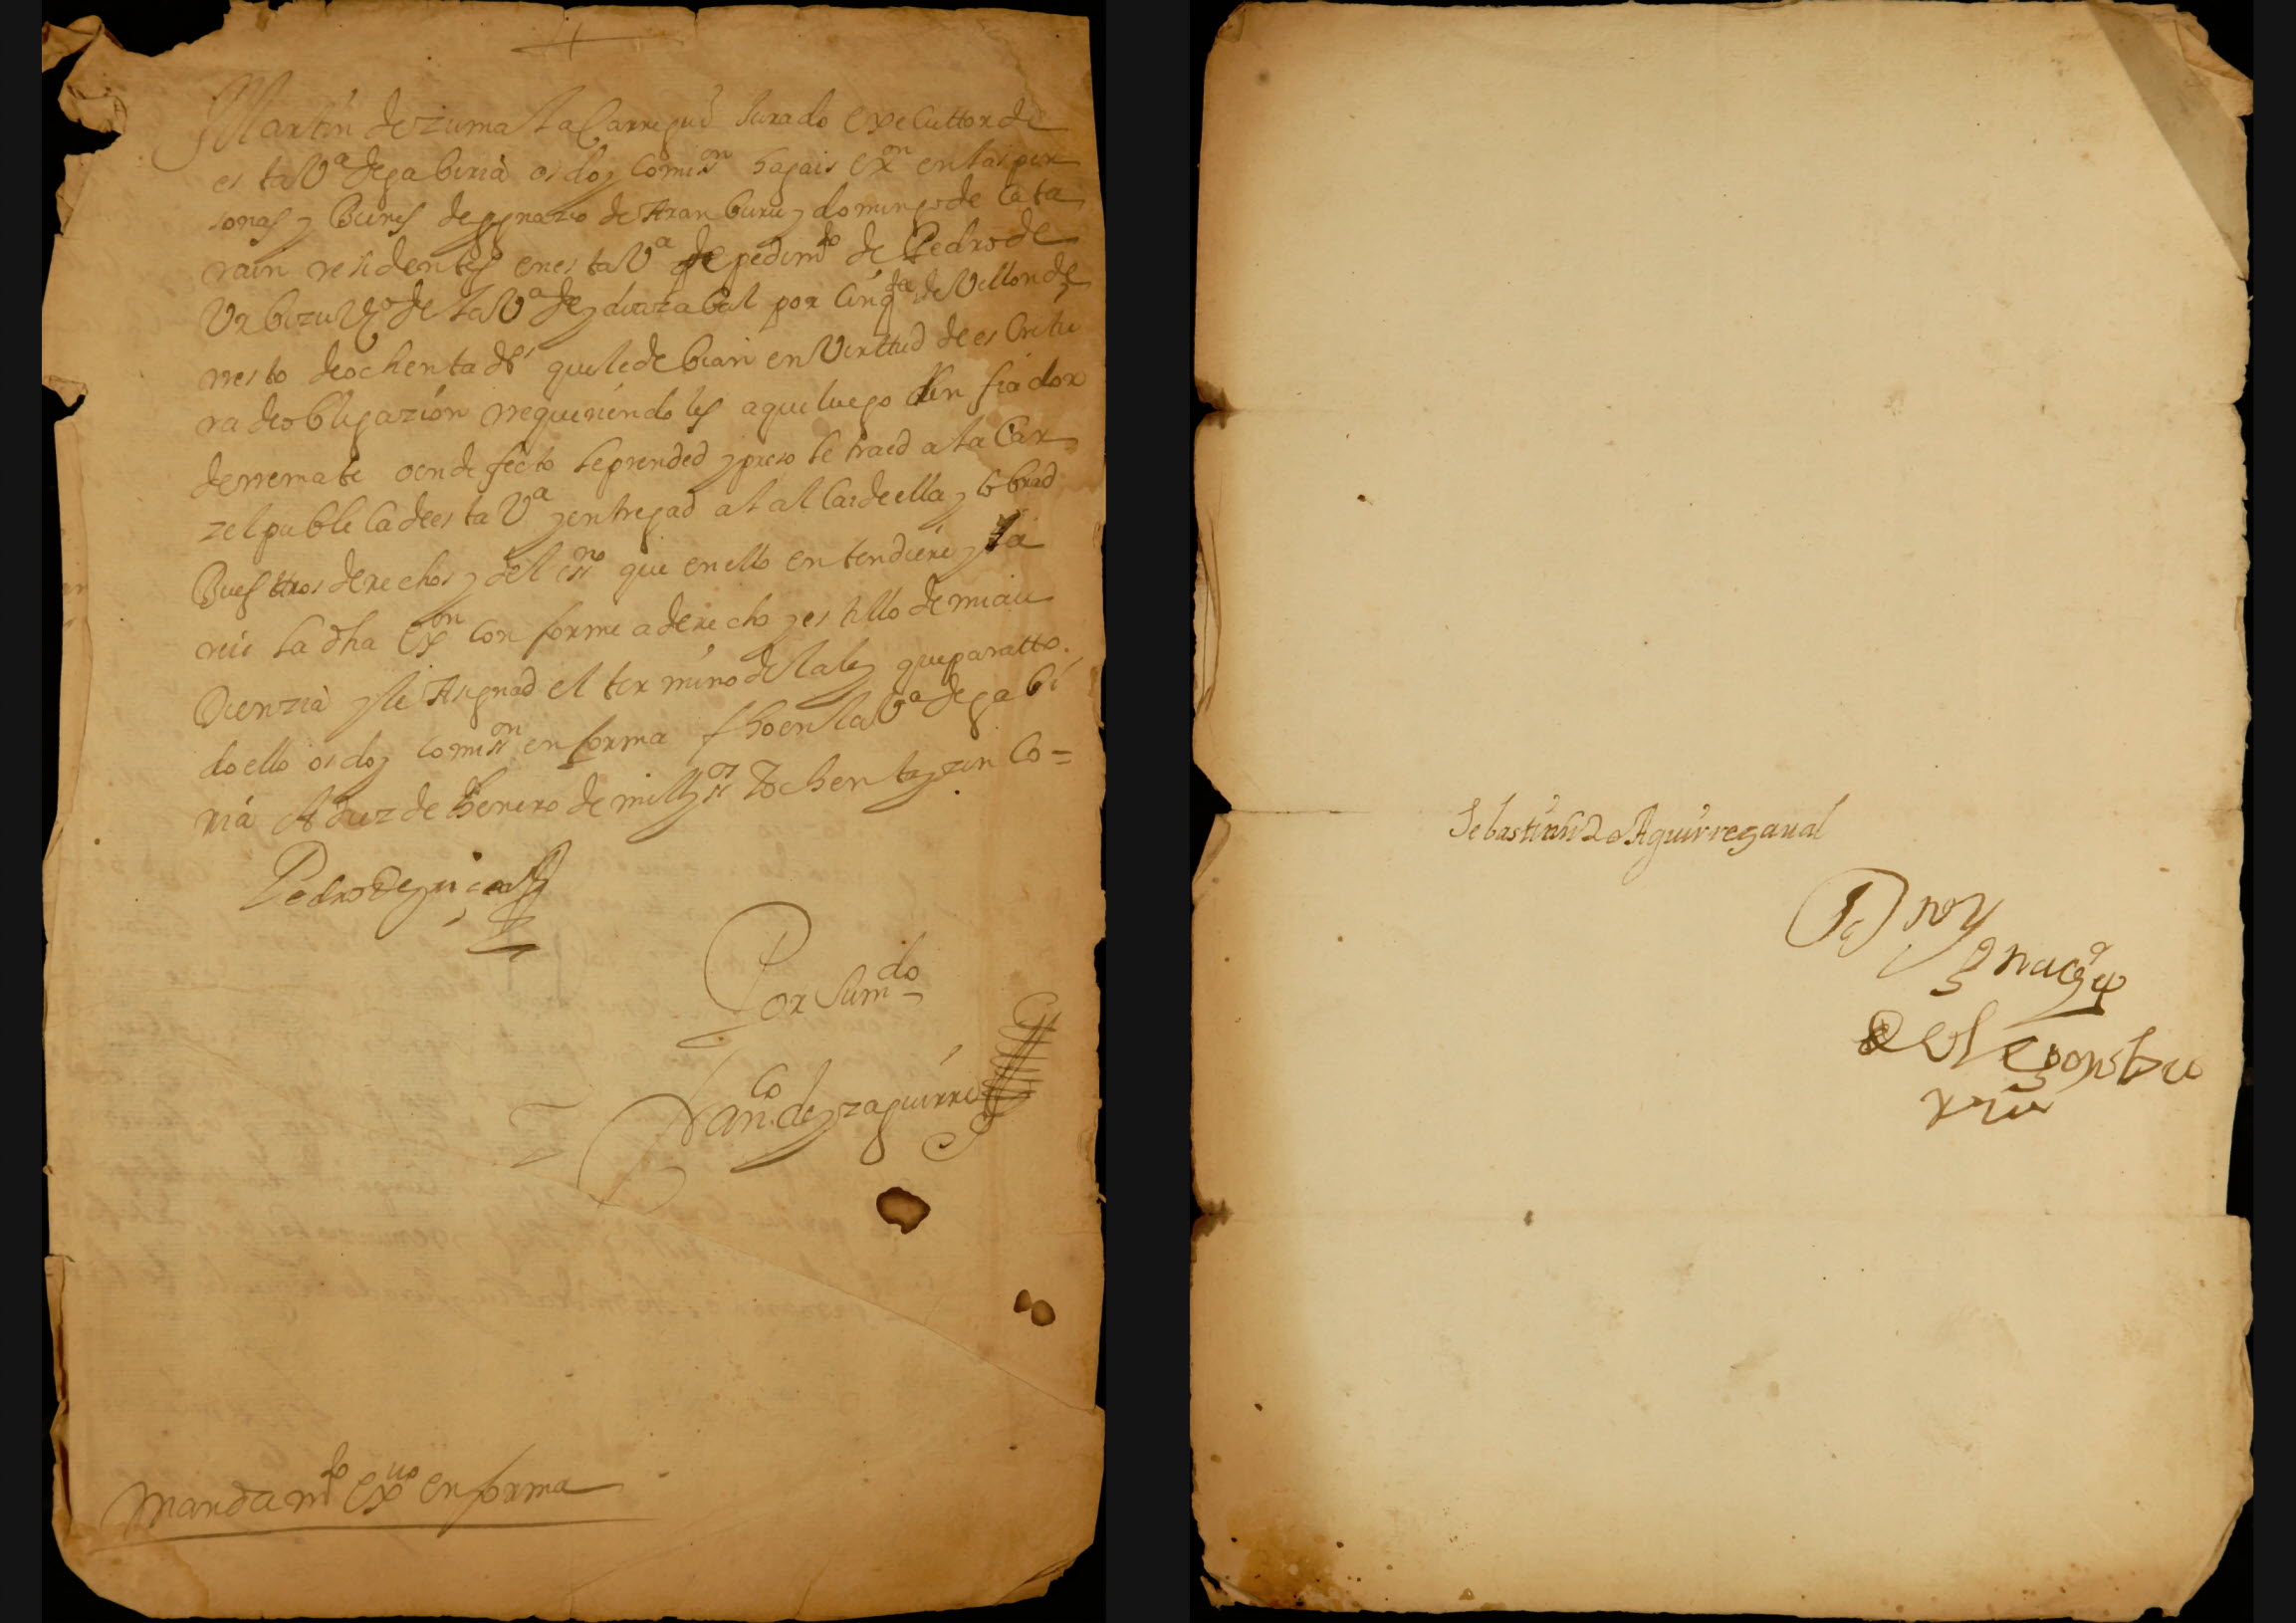 Martin de zumalacarregui Jurado executtor de
esta Va de gabiria os doy comisson hagais exon en las per
sonas y Bienes de ygnazio de Aranburu y domingo de Lata
rain residentes en esta Va de pedimto de Pedro de
Urbizu Vzo de la Va de ydiazabal por cinqta ds de Vellon de
rresto de ochenta ds que le debian en Virttud de escritu
ra de obligazion rrequeriendoles a que luego den fiador
de rremate o en defecto le prended y preso le traed a la Car
zel publica de esta Va y entregad al alcaide ella y cobrad
Buesttros derechos y del essno que en ello entendiere y ha
reis la dha exon conforme a derecho y estillo de mi au
dienzia y le Asignad el termino de la ley que para tto
do ello os doy comisson en forma fho en la Va de gabi
ria A diez de henero de mill y ssos y ochenta y zinco =
Pedro de
Por su mdo
Franco de yzaguirre
Mandamto exuo en forma
Sebastian de Aguirrezaual